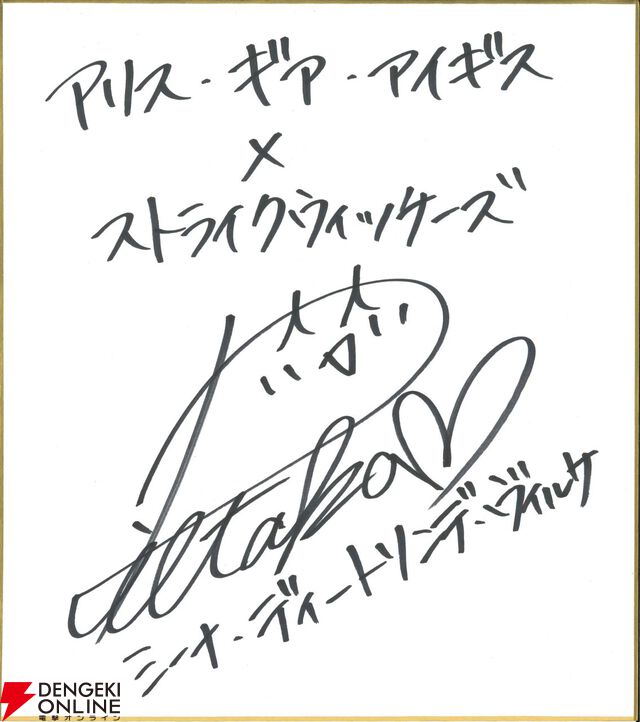 アリス・ギア・アイギス
×
ストライクウィッチーズ
ミーナ・ディートリンデ・ヴィルケ
DENGEKI
ONLINE
電撃オンライン